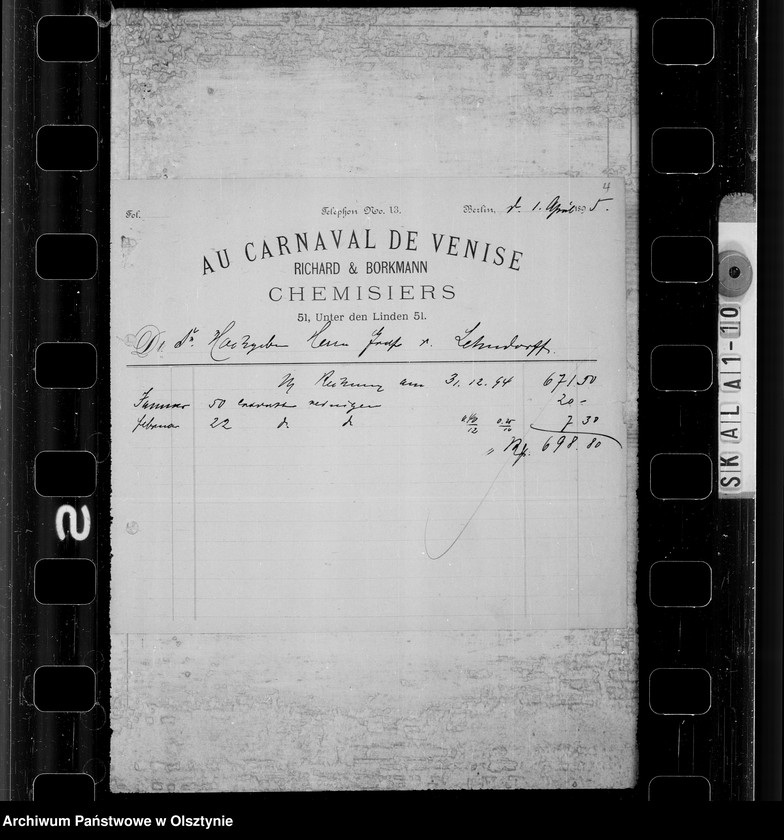 4
Fol.
Telephon No. 13.
Berlin, d. 1. April 1895.
AU CARNAVAL DE VENISE
RICHARD & BORKMANN
CHEMISIERS
51, Unter den Linden 51.
Sr. Hochgeboren Herrn Graf v. Lehndorff.
Rechnung am 31.12.94 671 50
Januar 50 reinigen 20 -
Februar 22 d. d. 7 30
698.80
2
SKALA 1-10
Archiwum Państwowe w Olsztynie